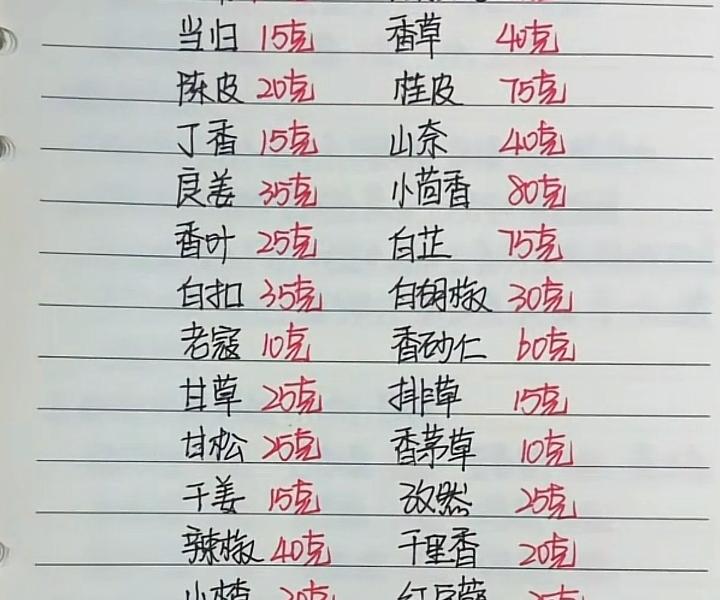 当归 15克 香草 40克
陈皮 20克 桂皮 75克
丁香 15克 山奈 40克
良姜 35克 小茴香 80克
香叶 25克 白芷 75克
白扣 35克 白胡椒 30克
老寇 10克 香砂仁 60克
甘草 25克 排草 15克
甘松 25克 香茅草 10克
干姜 15克 孜然 25克
辣椒 40克 千里香 20克